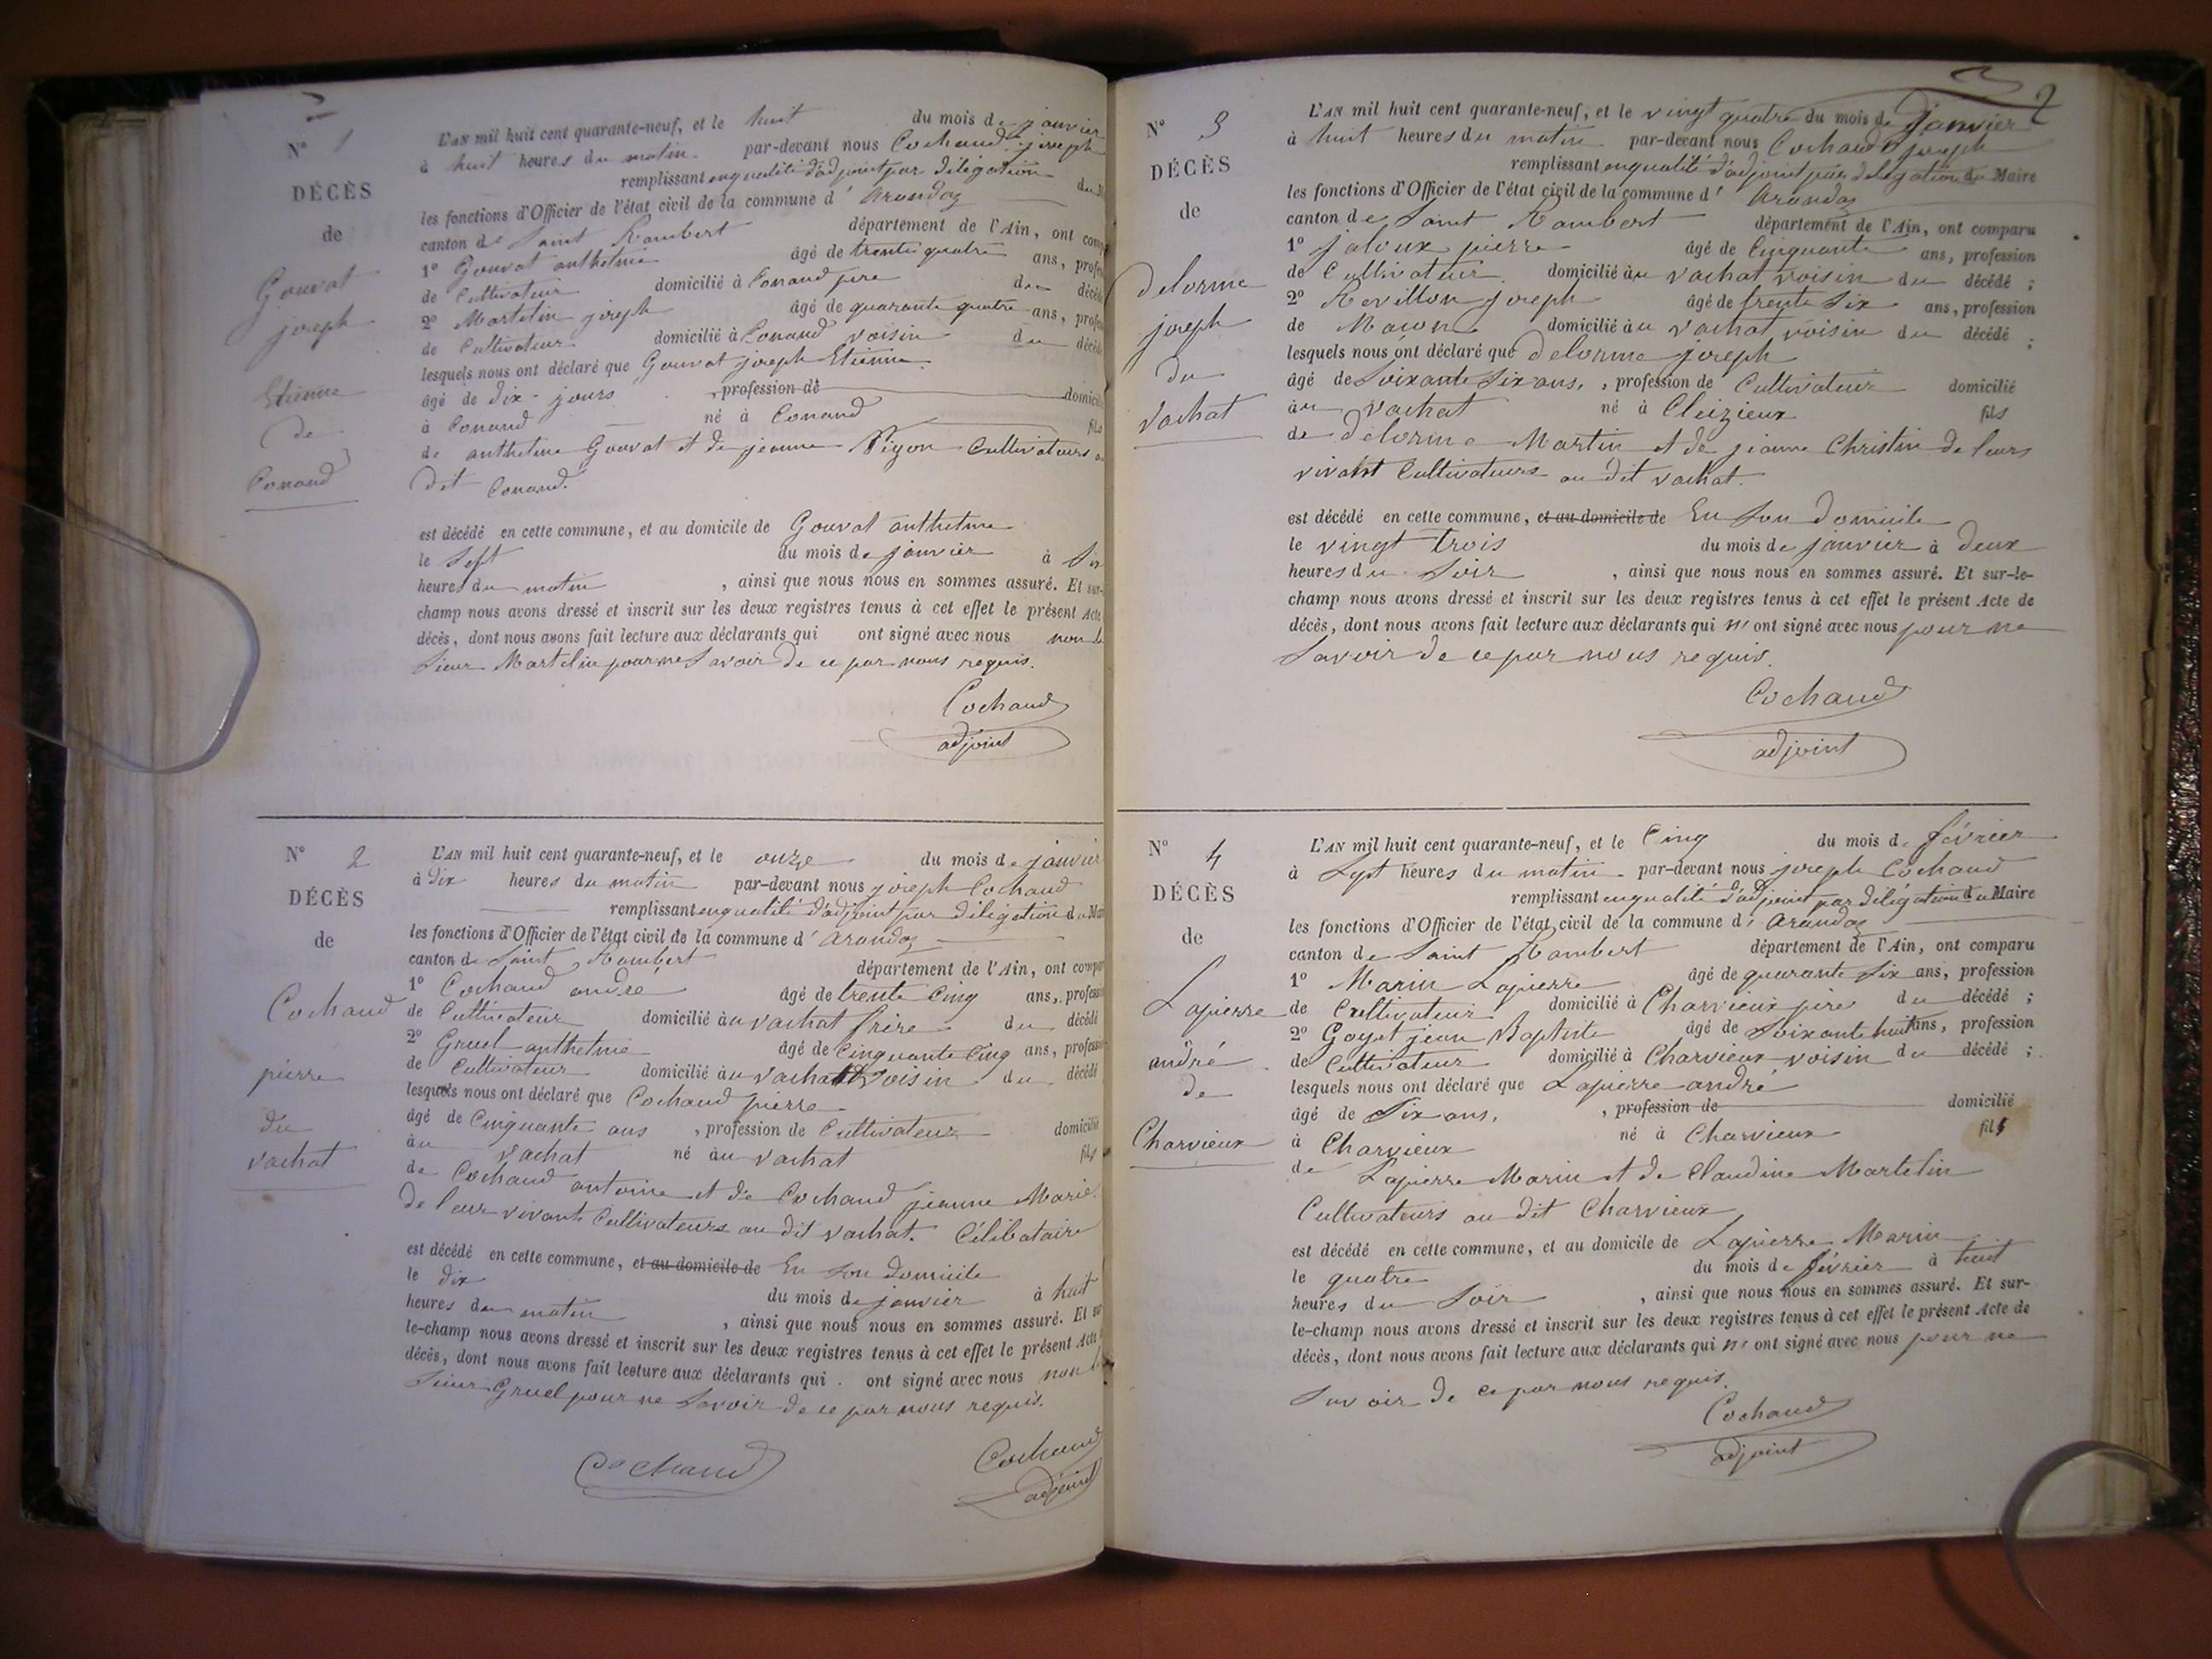 N° 1
DÉCÈS
de
Gouvat
joseph
Etienne
de
Conand
L'AN mil huit cent quarante-neuf, et le huit du mois de janvier
à huit heures du matin par-devant nous Cochaud joseph
remplissant en qualité d'adjoint par délégation du
les fonctions d'Officier de l'état civil de la commune d' arandaz
canton de Saint Rambert département de l'Ain, ont
1° Gouvat anthelme âgé de trente quatre ans,
de Cultivateur domicilié à Conand père du
2° Martelin joseph âgé de quarante quatre ans,
de Cultivateur domicilié à Conand voisin du
lesquels nous ont déclaré que Gouvat joseph Etienne
âgé de dix jours , profession de
à Conand né à Conand fils
de anthelme Gouvat et de jeanne Pigon Cultivateurs au
dit Conand.
est décédé en cette commune, et au domicile de Gouvat anthelme
le Sept du mois de janvier à Six
heures du matin , ainsi que nous nous en sommes assuré. Et sur-
champ nous avons dressé et inscrit sur les deux registres tenus à cet effet le présent Acte
décès, dont nous avons fait lecture aux déclarants qui ont signé avec nous non le
Sieur Martelin pour ne Savoir de ce par nous requis.
Cochaud
adjoint
N° 2
DÉCÈS
de
Cochaud
pierre
du
vachat
L'AN mil huit cent quarante-neuf, et le onze du mois de janvier
à dix heures du matin par-devant nous joseph Cochaud
remplissant en qualité d'adjoint par délégation du
les fonctions d'Officier de l'état civil de la commune d' arandaz
canton de Saint Rambert département de l'Ain, ont
1° Cochaud andré âgé de trente Cinq ans,
de Cultivateur domicilié au vachat frère du décédé
2° Gruel anthelme âgé de Cinquante Cinq ans,
de Cultivateur domicilié au vachat voisin du décédé
lesquels nous ont déclaré que Cochaud pierre
âgé de Cinquante ans , profession de Cultivateur domicilié
au vachat né au vachat fils
de Cochaud antoine et de Cochaud jeanne Marie
de leur vivant Cultivateurs au dit vachat. Célibataire
est décédé en cette commune, et au domicile de En Son Domicile
le dix du mois de janvier à huit
heures du matin , ainsi que nous nous en sommes assuré. Et sur
le-champ nous avons dressé et inscrit sur les deux registres tenus à cet effet le présent Acte
décès, dont nous avons fait lecture aux déclarants qui ont signé avec nous non
Sieur Gruel pour ne Savoir de ce par nous requis.
Cochaud
Cochaud
adjoint
2
N° 3
DÉCÈS
de
Delorme
joseph
du
vachat
L'AN mil huit cent quarante-neuf, et le vingt quatre du mois de Janvier
à huit heures du matin par-devant nous Cochaud joseph
remplissant en qualité d'adjoint par délégation du Maire
les fonctions d'Officier de l'état civil de la commune d' arandaz
canton de Saint Rambert département de l'Ain, ont comparu
1° jaloux pierre âgé de Cinquante ans, profession
de Cultivateur domicilié au vachat voisin du décédé ;
2° Revillon joseph âgé de trente Six ans, profession
de Maçon domicilié au vachat voisin du décédé ;
lesquels nous ont déclaré que delorme joseph
âgé de Soixante Six ans, , profession de Cultivateur domicilié
au vachat né à Cleizieux fils
de delorme Martin et de jeanne Christin de leurs
vivant Cultivateurs au dit vachat.
est décédé en cette commune, et au domicile de En Son Domicile
le vingt trois du mois de janvier à deux
heures du Soir , ainsi que nous nous en sommes assuré. Et sur-le-
champ nous avons dressé et inscrit sur les deux registres tenus à cet effet le présent Acte de
décès, dont nous avons fait lecture aux déclarants qui n' ont signé avec nous pour ne
Savoir de ce par nous requis.
Cochaud
adjoint
N° 4
DÉCÈS
de
Lapierre
andré
de
Charvieux
L'AN mil huit cent quarante-neuf, et le Cinq du mois de février
à Sept heures du matin par-devant nous joseph Cochaud
remplissant en qualité d'adjoint par délégation du Maire
les fonctions d'Officier de l'état civil de la commune d' arandaz
canton de Saint Rambert département de l'Ain, ont comparu
1° Marin Lapierre âgé de quarante Six ans, profession
de Cultivateur domicilié à Charvieux père du décédé ;
2° Goyet jean Baptiste âgé de Soixante huit ans, profession
de Cultivateur domicilié à Charvieux voisin du décédé ;
lesquels nous ont déclaré que Lapierre andré
âgé de Six ans, , profession de domicilié
à Charvieux né à Charvieux fils
de Lapierre Marin et de Claudine Martelin
Cultivateurs au dit Charvieux
est décédé en cette commune, et au domicile de Lapierre Marin
le quatre du mois de février à huit
heures du Soir , ainsi que nous nous en sommes assuré. Et sur-
le-champ nous avons dressé et inscrit sur les deux registres tenus à cet effet le présent Acte de
décès, dont nous avons fait lecture aux déclarants qui n' ont signé avec nous pour ne
Savoir de ce par nous requis.
Cochaud
adjoint